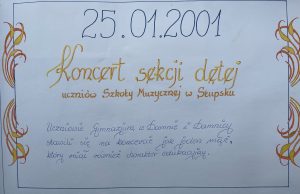 25.01.2001
Koncert sekcji dętej
uczniów Szkoły Muzycznej w Słupsku
Uczniowie Gimnazjum w Damnie i Damnicy
stawili się na koncercie jak jeden mąż,
który miał również charakter edukacyjny.